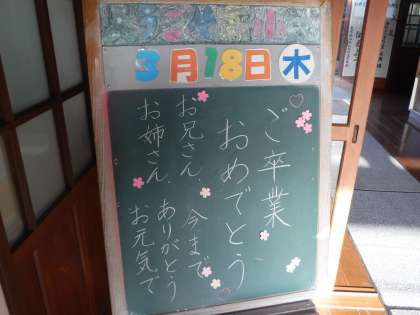 3月18日木
ご卒業
おめでとう
お兄さん、今まで
お姉さん、ありがとう
お元気で